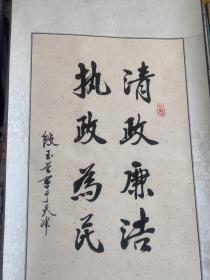 清政廉洁
执政為民
段玉芝书于天津